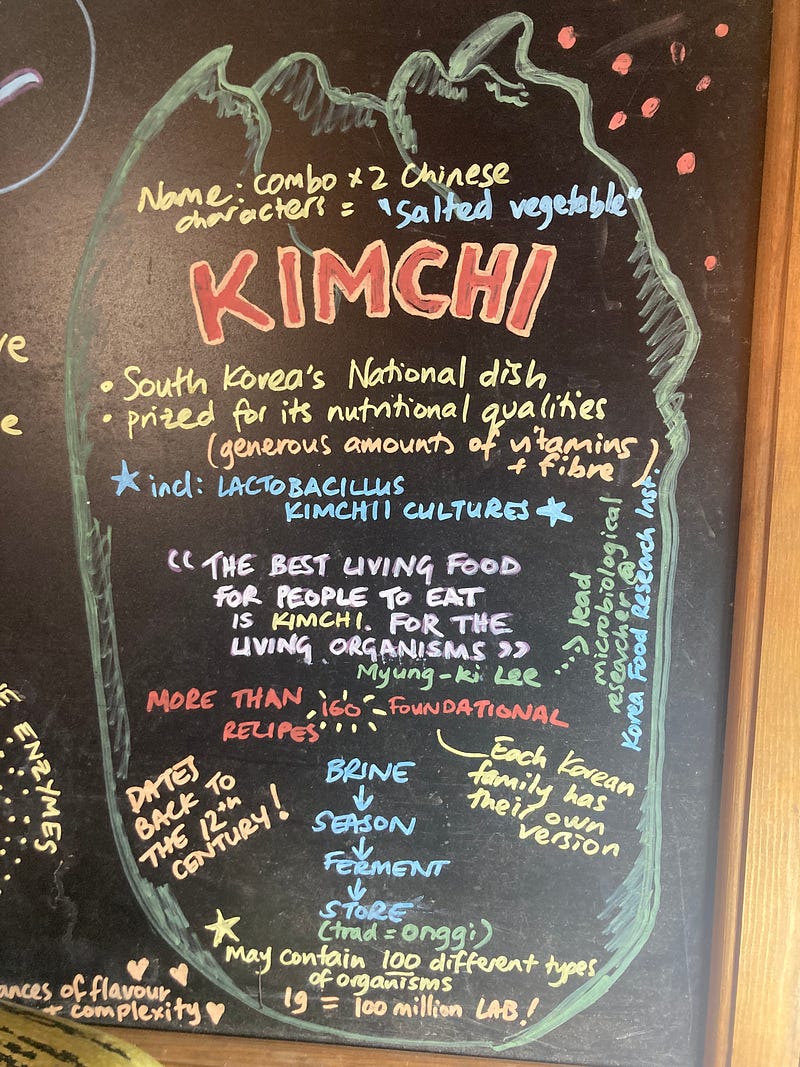 Name: combo x 2 Chinese
characters = "salted vegetable"
KIMCHI
• South Korea's National dish
• prized for its nutritional qualities
(generous amounts of vitamins
+ fibre)
★ incl: LACTOBACILLUS
KIMCHII CULTURES ★
"THE BEST LIVING FOOD
FOR PEOPLE TO EAT
IS KIMCHI. FOR THE
LIVING ORGANISMS"
Myung-Ki Lee
...> lead
microbiological
researcher @
Korea Food Research Inst.
MORE THAN 160 FOUNDATIONAL
RECIPES
Each Korean
family has
their own
version
DATES
BACK TO
THE 12th
CENTURY!
BRINE
↓
SEASON
↓
FERMENT
↓
STORE
(trad = onggi)
★ May contain 100 different types
of organisms
1g = 100 million LAB!
ENZYMES
ances of flavour
+ complexity ♥